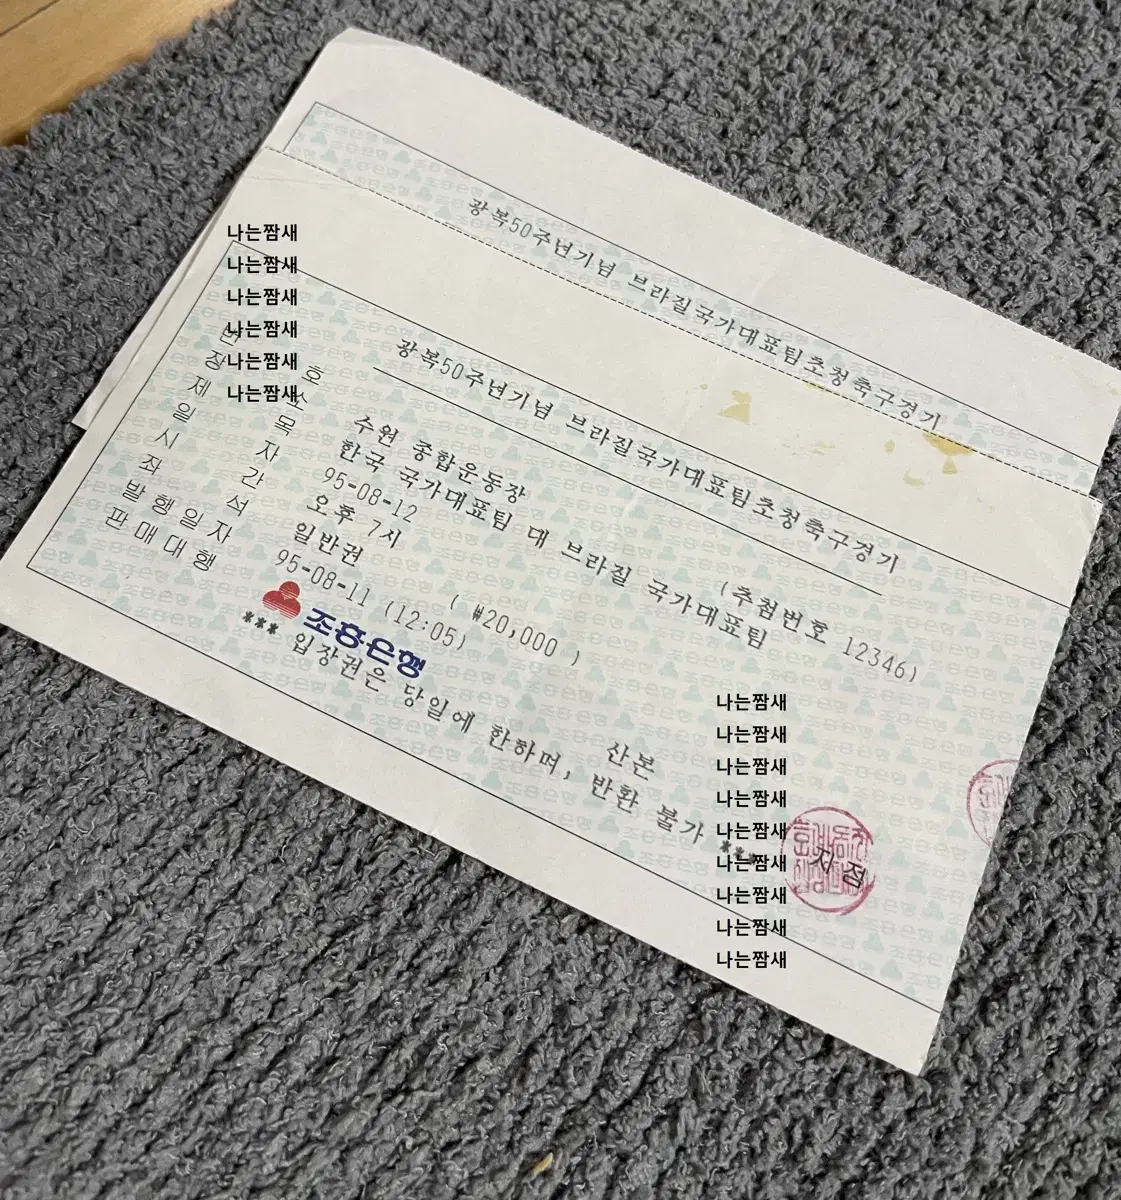 광복50주년기념 브라질국가대표팀초청축구경기
광복50주년기념 브라질국가대표팀초청축구경기
나는짬새
나는짬새
나는짬새
나는짬새
나는짬새
나는짬새
번 호 (추첨번호 12346)
장 소 수원 종합운동장
제 목 한국 국가대표팀 대 브라질 국가대표팀
일 자 95-08-12
시 간 오후 7시
좌 석 일반권 ( ₩20,000 )
발행일자 95-08-11 (12:05)
판매대행 조흥은행 산본 지점
*** 입장권은 당일에 한하며, 반환 불가 ***
나는짬새
나는짬새
나는짬새
나는짬새
나는짬새
나는짬새
나는짬새
나는짬새
나는짬새